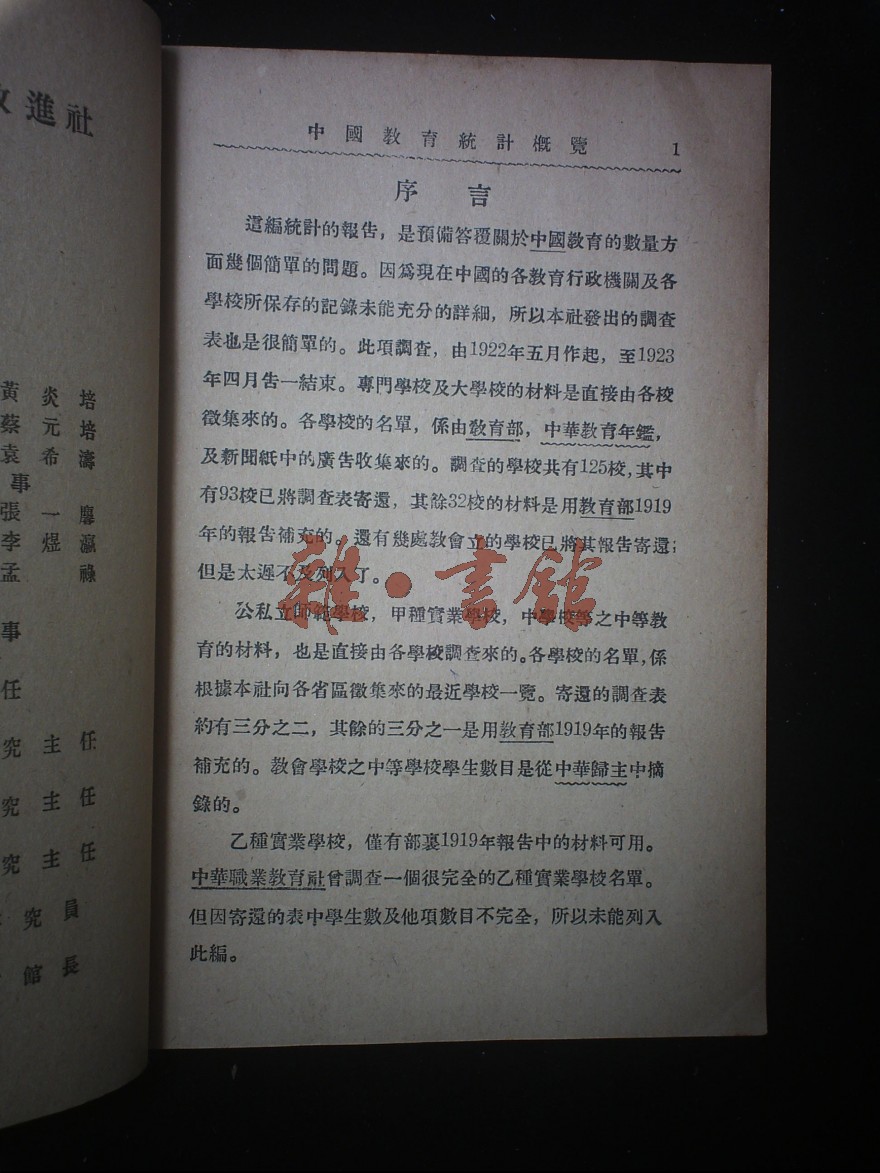 進社
黃炎培
蔡元培
袁希濤
事
張一麐
李煜瀛
孟祿
事
任
究主任
究主任
究主任
究員
館長
中國教育統計概覽 1
序言
這編統計的報告，是預備答覆關於中國教育的數量方
面幾個簡單的問題。因爲現在中國的各教育行政機關及各
學校所保存的記錄未能充分的詳細，所以本社發出的調查
表也是很簡單的。此項調查，由1922年五月作起，至1923
年四月告一結束。專門學校及大學校的材料是直接由各校
徵集來的。各學校的名單，係由教育部，中華教育年鑑，
及新聞紙中的廣告收集來的。調查的學校共有125校，其中
有93校已將調查表寄還，其餘32校的材料是用教育部1919
年的報告補充的。還有幾處教會立的學校已將其報告寄還；
但是太遲不及列入了。
公私立師範學校，甲種實業學校，中學校等之中等教
育的材料，也是直接由各學校調查來的。各學校的名單，係
根據本社向各省區徵集來的最近學校一覽。寄還的調查表
約有三分之二，其餘的三分之一是用教育部1919年的報告
補充的。教會學校之中等學校學生數目是從中華歸主中摘
錄的。
乙種實業學校，僅有部裏1919年報告中的材料可用。
中華職業教育社曾調查一個很完全的乙種實業學校名單。
但因寄還的表中學生數及他項數目不完全，所以未能列入
此編。
雜·書館